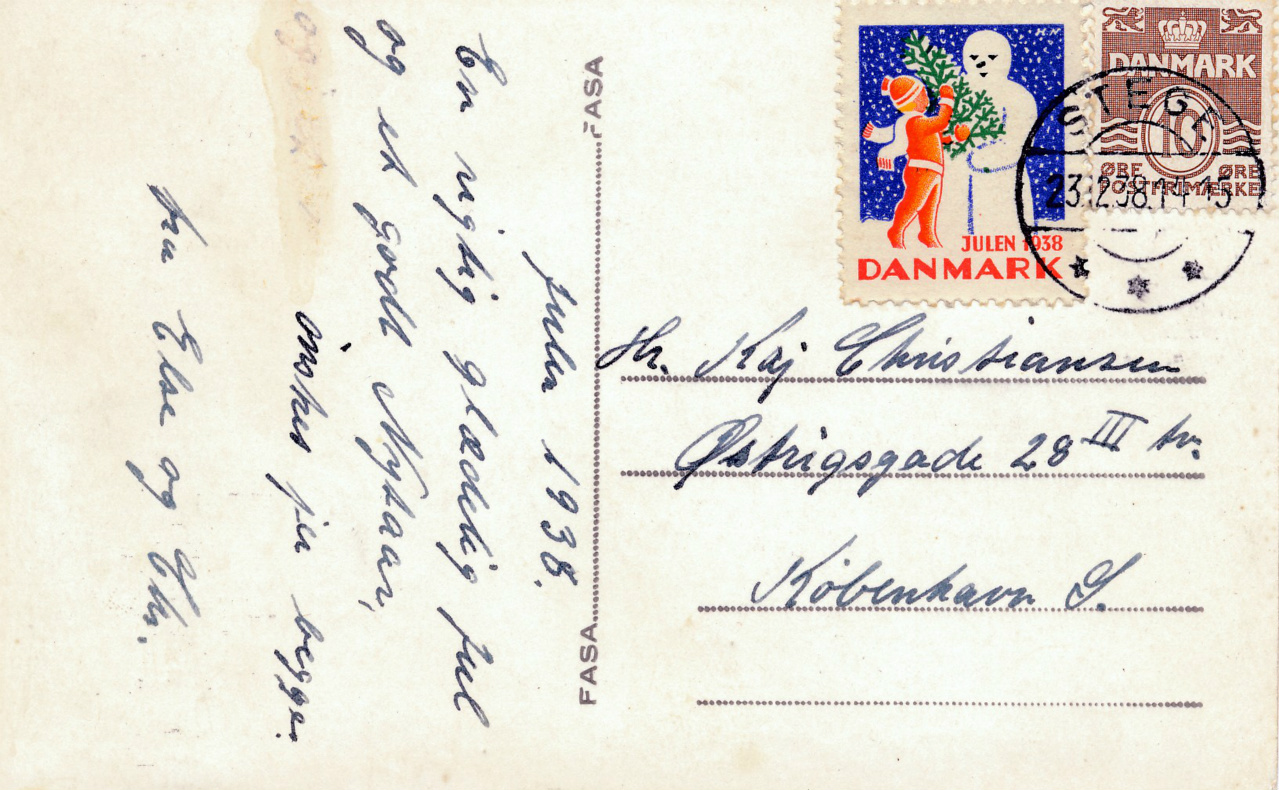 Julen 1938.
En rigtig glædelig Jul
og et godt Nytaar,
og
ønskes jer begge.
fra Else og Chr.
FASA
FASA
HN
JULEN 1938
DANMARK
DANMARK
10
ØRE ØRE
POSTFRIMÆRKE
STEGE
23.12.38.14-15
Hr. Kaj Christiansen
Østrigsgade 28 III tv.
København S.